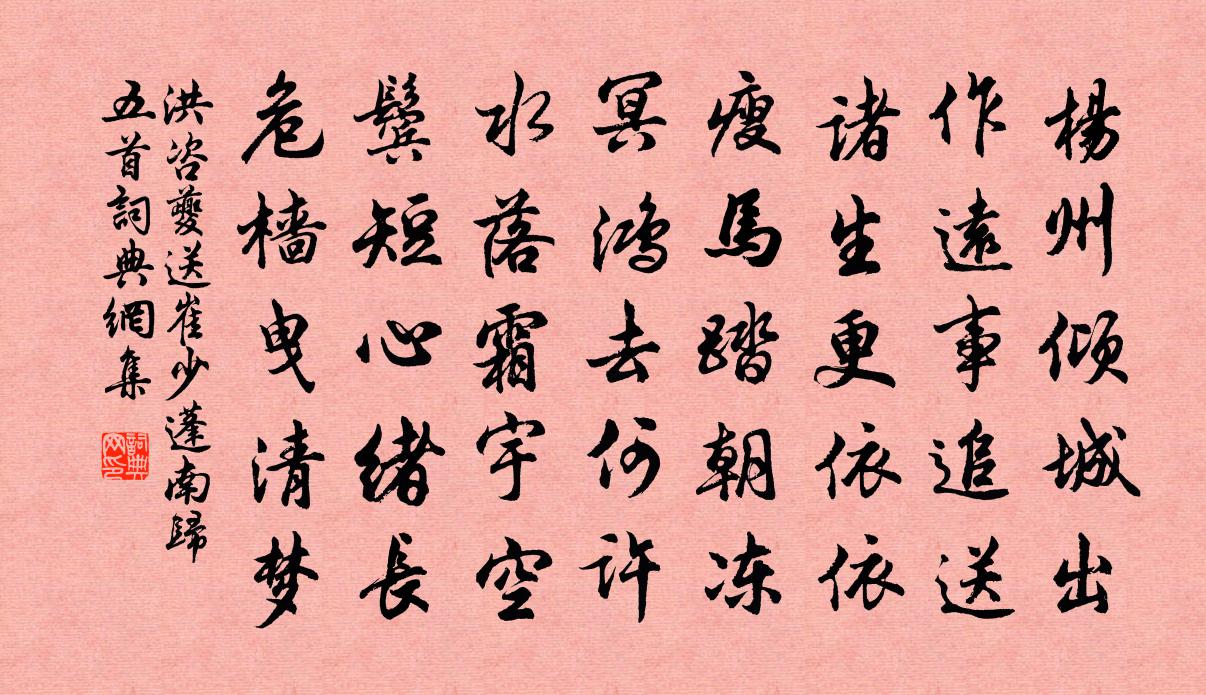 楊州倾城出
作遠事追送
诸生更依依
瘦馬踏朝冻
冥鸿去何许
水落霜宇空
鬓短心绪長
危樯曳清梦
洪咨夔送崔少蓬南歸
五首詞典網集
詞典网印